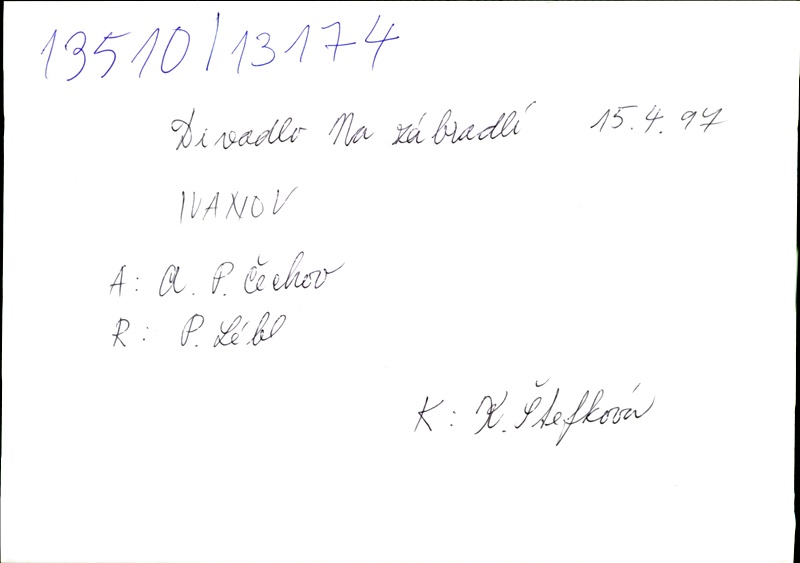 13510/13174
Divadlo Na zábradlí 15.4.97
IVANOV
A: A. P. Čechov
R: P. Lébl
K: K. Štefková